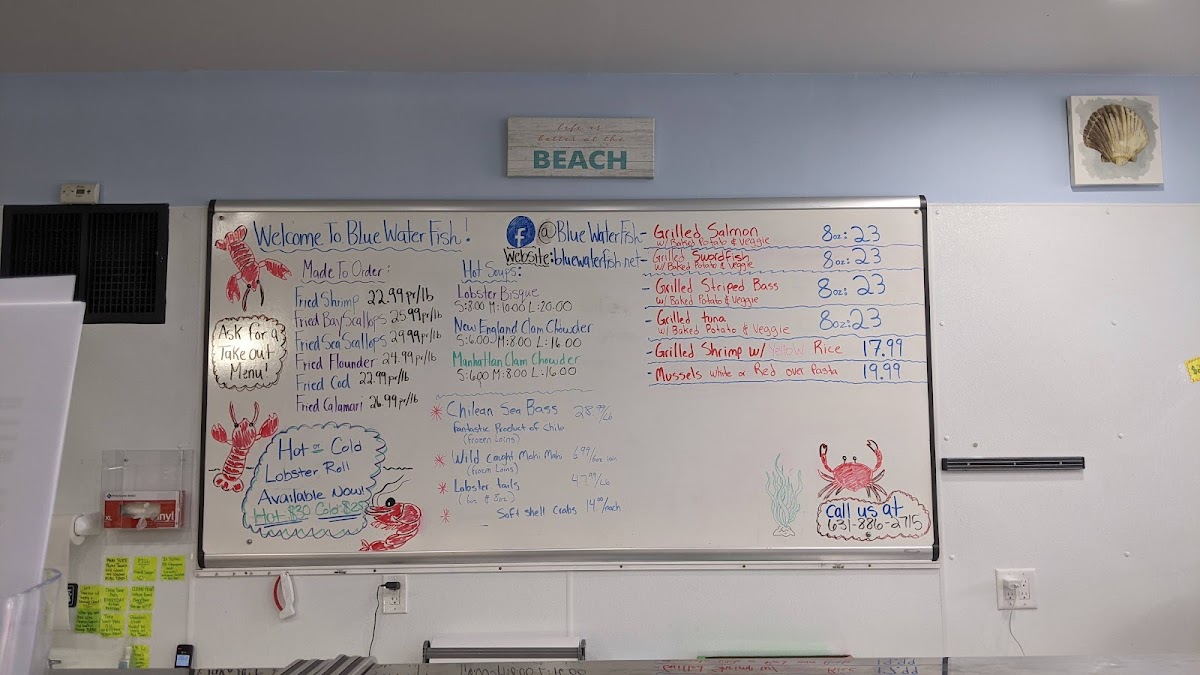 Life is
better at the
BEACH
Welcome To Blue Water Fish!
@Blue Water Fish
Website:bluewaterfish.net
Made To Order:
Fried Shrimp 22.99 pr/lb
Fried Bay Scallops 25.99 pr/lb
Fried Sea Scallops 29.99 pr/lb
Fried Flounder 24.99 pr/lb
Fried Cod 22.99 pr/lb
Fried Calamari 26.99 pr/lb
Ask for a
Take Out
Menu!
Hot or Cold
Lobster Roll
Available Now!
Hot $30 Cold $25
Hot Soups:
Lobster Bisque
S:8.00 M:10.00 L:20.00
New England Clam Chowder
S:6.00 M:8.00 L:16.00
Manhattan Clam Chowder
S:6.00 M:8.00 L:16.00
* Chilean Sea Bass 28.99/Lb
Fantastic Product of Chile
(frozen Loins)
* Wild caught Mahi Mahi 6.99/6oz loin
(frozen Loins)
* Lobster tails 47.99/Lb
* Soft shell crabs 14.00/each
- Grilled Salmon 8oz: 23
w/ Baked Potato & Veggie
- Grilled Swordfish 8oz: 23
w/ Baked Potato & Veggie
- Grilled Striped Bass 8oz: 23
w/ Baked Potato & Veggie
- Grilled tuna 8oz: 23
w/ Baked Potato & Veggie
- Grilled Shrimp w/ Yellow Rice 17.99
- Mussels White or Red over Pasta 19.99
call us at
631-886-2715
XL